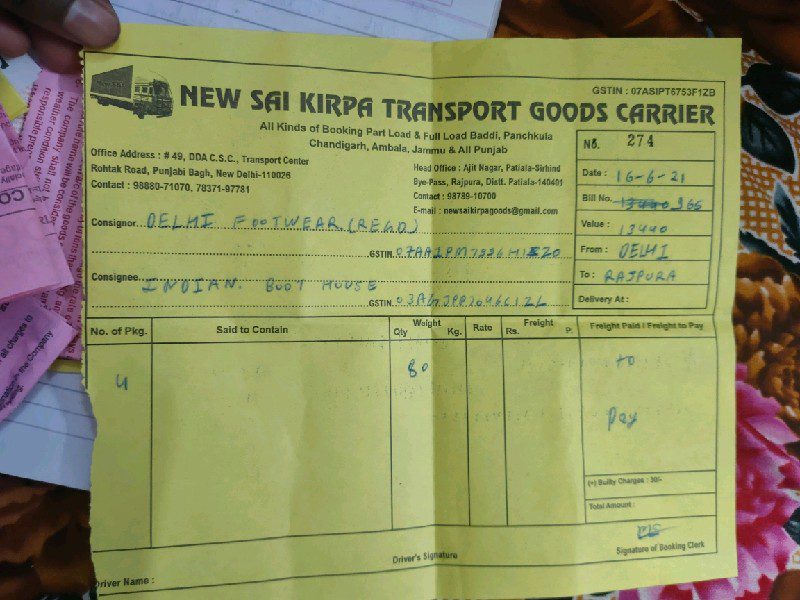 GSTIN : 07ASIPT6753F1ZB
NEW SAI KIRPA TRANSPORT GOODS CARRIER
All Kinds of Booking Part Load & Full Load Baddi, Panchkula
Chandigarh, Ambala, Jammu & All Punjab
Office Address : # 49, DDA C.S.C., Transport Center
Rohtak Road, Punjabi Bagh, New Delhi-110026
Contact : 98880-71070, 78371-97781
Head Office : Ajit Nagar, Patiala-Sirhind
Bye-Pass, Rajpura, Distt. Patiala-140401
Contact : 98789-10700
E-mail : newsaikirpagoods@gmail.com
No. 274
Date : 16-6-21
Bill No. 13440 966
Value : 13440
From : DELHI
To : RAJPURA
Delivery At :
Consignor DELHI FOOTWEAR (REGD)
GSTIN.
Consignee INDIAN BOOT HOUSE
GSTIN.
No. of Pkg. Said to Contain Weight Qty Kg. Rate Freight Rs. P. Freight Paid / Freight to Pay
4 80 to
Pay
(+) Builty Charges : 30/-
Total Amount :
Signature of Booking Clerk
Driver's Signature
Driver Name :